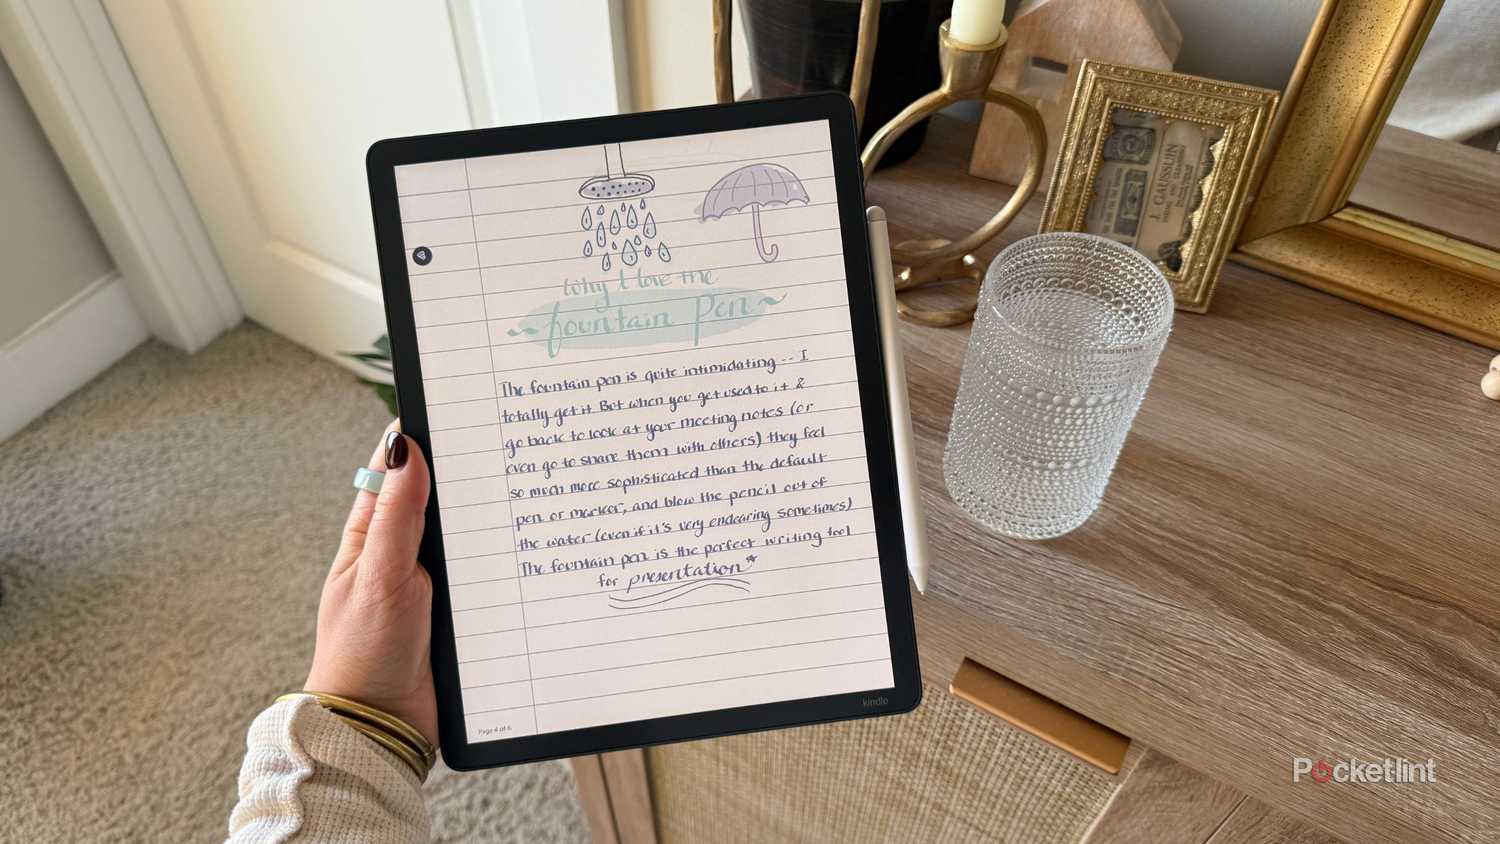 Why I love the
fountain Pen
The fountain pen is quite intimidating -- I
totally get it. But when you get used to it &
go back to look at your meeting notes (or
even go to share them with others) they feel
so much more sophisticated than the default
pen or marker, and blow the pencil out of
the water (even if it's very endearing sometimes)
The fountain pen is the perfect writing tool
for presentation*
Page 4 of 6
kindle
J. GAUSSUIN
Pocketlint